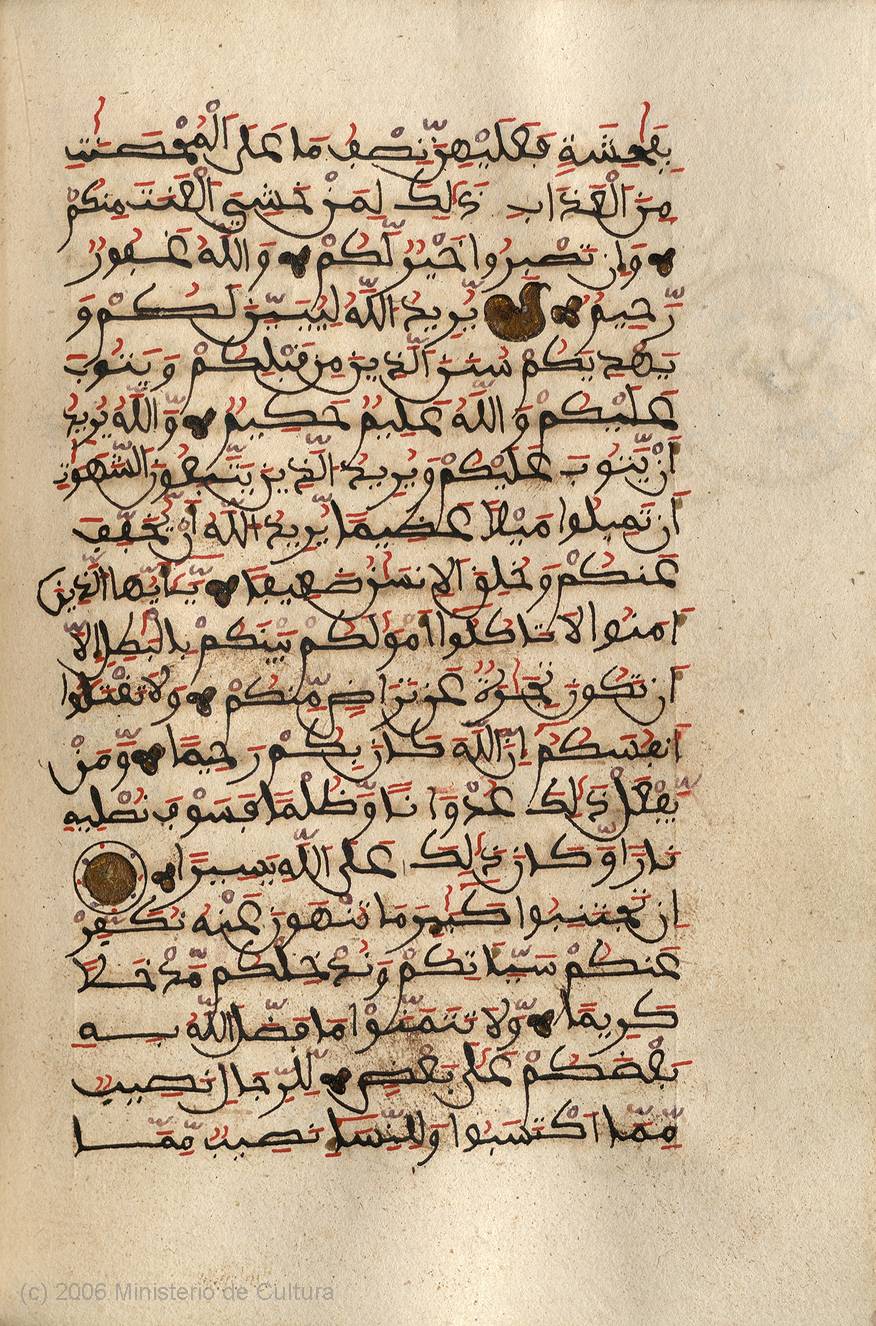 بِفَٰحِشَةٍ فَعَلَيْهِنَّ نِصْفُ مَا عَلَى الْمُحْصَنَٰتِ
مِنَ الْعَذَابِ ذَٰلِكَ لِمَنْ خَشِيَ الْعَنَتَ مِنكُمْ
وَأَن تَصْبِرُوا خَيْرٌ لَّكُمْ وَاللَّهُ غَفُورٌ
رَّحِيمٌ يُرِيدُ اللَّهُ لِيُبَيِّنَ لَكُمْ وَ
يَهْدِيَكُمْ سُنَنَ الَّذِينَ مِن قَبْلِكُمْ وَيَتُوبَ
عَلَيْكُمْ وَاللَّهُ عَلِيمٌ حَكِيمٌ وَاللَّهُ يُرِيدُ
أَنْ يَّتُوبَ عَلَيْكُمْ وَيُرِيدُ الَّذِينَ يَتَّبِعُونَ الشَّهَوَٰتِ
أَن تَمِيلُوا مَيْلًا عَظِيمًا يُرِيدُ اللَّهُ أَنْ يُّخَفِّفَ
عَنكُمْ وَخُلِقَ الْإِنسَٰنُ ضَعِيفًا يَٰأَيُّهَا الَّذِينَ
ءَامَنُوا لَا تَاكُلُوا أَمْوَٰلَكُمْ بَيْنَكُمْ بِالْبَٰطِلِ إِلَّا
أَن تَكُونَ تِجَٰرَةٌ عَن تَرَاضٍ مِّنكُمْ وَلَا تَقْتُلُوا
أَنفُسَكُمْ إِنَّ اللَّهَ كَانَ بِكُمْ رَحِيمًا وَمَنْ
يَّفْعَلْ ذَٰلِكَ عُدْوَانًا وَظُلْمًا فَسَوْفَ نُصْلِيهِ
نَارًا وَكَانَ ذَٰلِكَ عَلَى اللَّهِ يَسِيرًا
إِن تَجْتَنِبُوا كَبَائِرَ مَا تُنْهَوْنَ عَنْهُ نُكَفِّرْ
عَنكُمْ سَيِّـَٔاتِكُمْ وَنُدْخِلْكُم مَّدْخَلًا
كَرِيمًا وَلَا تَتَمَنَّوْا مَا فَضَّلَ اللَّهُ بِهِ
بَعْضَكُمْ عَلَىٰ بَعْضٍ لِّلرِّجَالِ نَصِيبٌ
مِّمَّا اكْتَسَبُوا وَلِلنِّسَاءِ نَصِيبٌ مِّمَّا
(c) 2006 Ministerio de Cultura